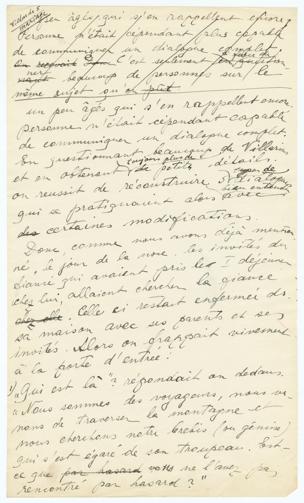 un peu âgés qui s'en rappellent encore
Personne n'était cependant plus capable
de communiquer un dialogue complet
C'est seulement en
beaucoup de personnes sur le
même sujet
un peu âgés qui s'en rappellent encore.
Personne n'était cépendant capable
de communiquer un dialogue complet.
En questionnant beaucoup de
et en obtenant de petits détails.
on réussit de reconstruire
qui se pratiquaient alors avec
des certaines modifications.
Donc, comme nous avons déjà mention
né, le jour de la noce. les invités du
fiancé qui avaient pris les déjeuner
chez lui, allaient chercher la fiancée
chez elle. Celle ci restait enfermée ds.
sa maison avec ses parents et ses
invités. Alors on frappait vivement
à la porte d'entrée:
1) „Qui est là"? répondait on dedans.
„Nous sommes des voyageurs, nous ve-
nons de traverser la montagne et
nous cherchons notre brebis (ou génisse)
qui s'est égaré de son troupeau. Est-
ce que par hasard vous ne l'avez pas
rencontré par hasard?"